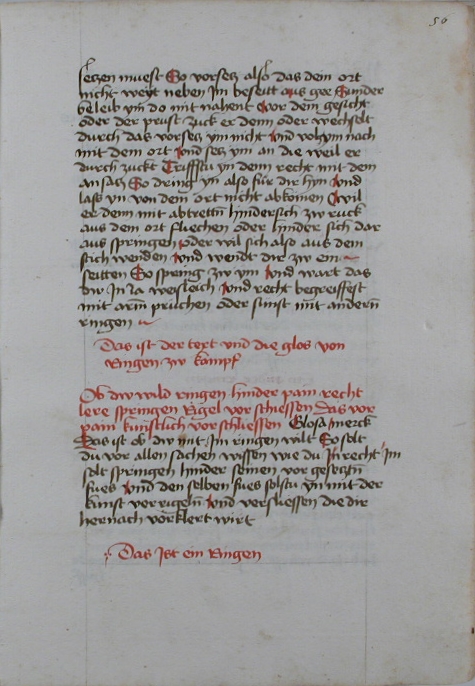 50
setzen muest So vorsetz also das dem ort
nicht weyt neben Im beseitt aus gee Sunder
beleib ym do mit nahent vor dem gesicht
oder der prust zuck er denn oder wechselt
durch das vorsetz ym nicht Vnd volg ym nach
mit dem ort Vnd setz ym an die weil er
durch zuckt Triffstu yn denn recht mit dem
an satz So dring yn also für dir hyn Vnd
lass yn von dem ort nicht abkomen Wil
er denn mit abtrettn hindersich zw ruck
aus dem ort fliechen oder hinder sich dar
aus springen oder wil sich also aus dem
stich wenden Vnd wendt dir zw ein
seitten So spring zw ym Vnd wart das
dw In Ja weisleich Vnd recht begreiffest
mit arm pruchen oder sunst mit andern
ringen
Das ist der text vnd die glos von
Ringen zw kampf
Ob dw wild ringen hinder pain recht
lere springen Rigel vor schiessen Das vor
pain kunstlich vor schliessen Glosa merck
Das ist ob dw mit Im ringen wilt So solt
du vor allen sachen wissen wie du In recht Im
solt springen hinder seinen vor gesetztn
fues Vnd den selben fues solstu ym mit der
kunst vor rigeln Vnd versliessen die dir
hernach vorklert wirt
Das Ist ein Ringen